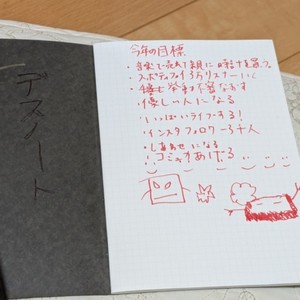 デスノート
今年の目標
・音楽で売れて親に時計を買う
・スポティファイ3万リスナーいく
・
・優しい人になる
・いっぱいライブーする!
・インスタフォロワー3千人
・しあわせになる
!コミュ力あげる